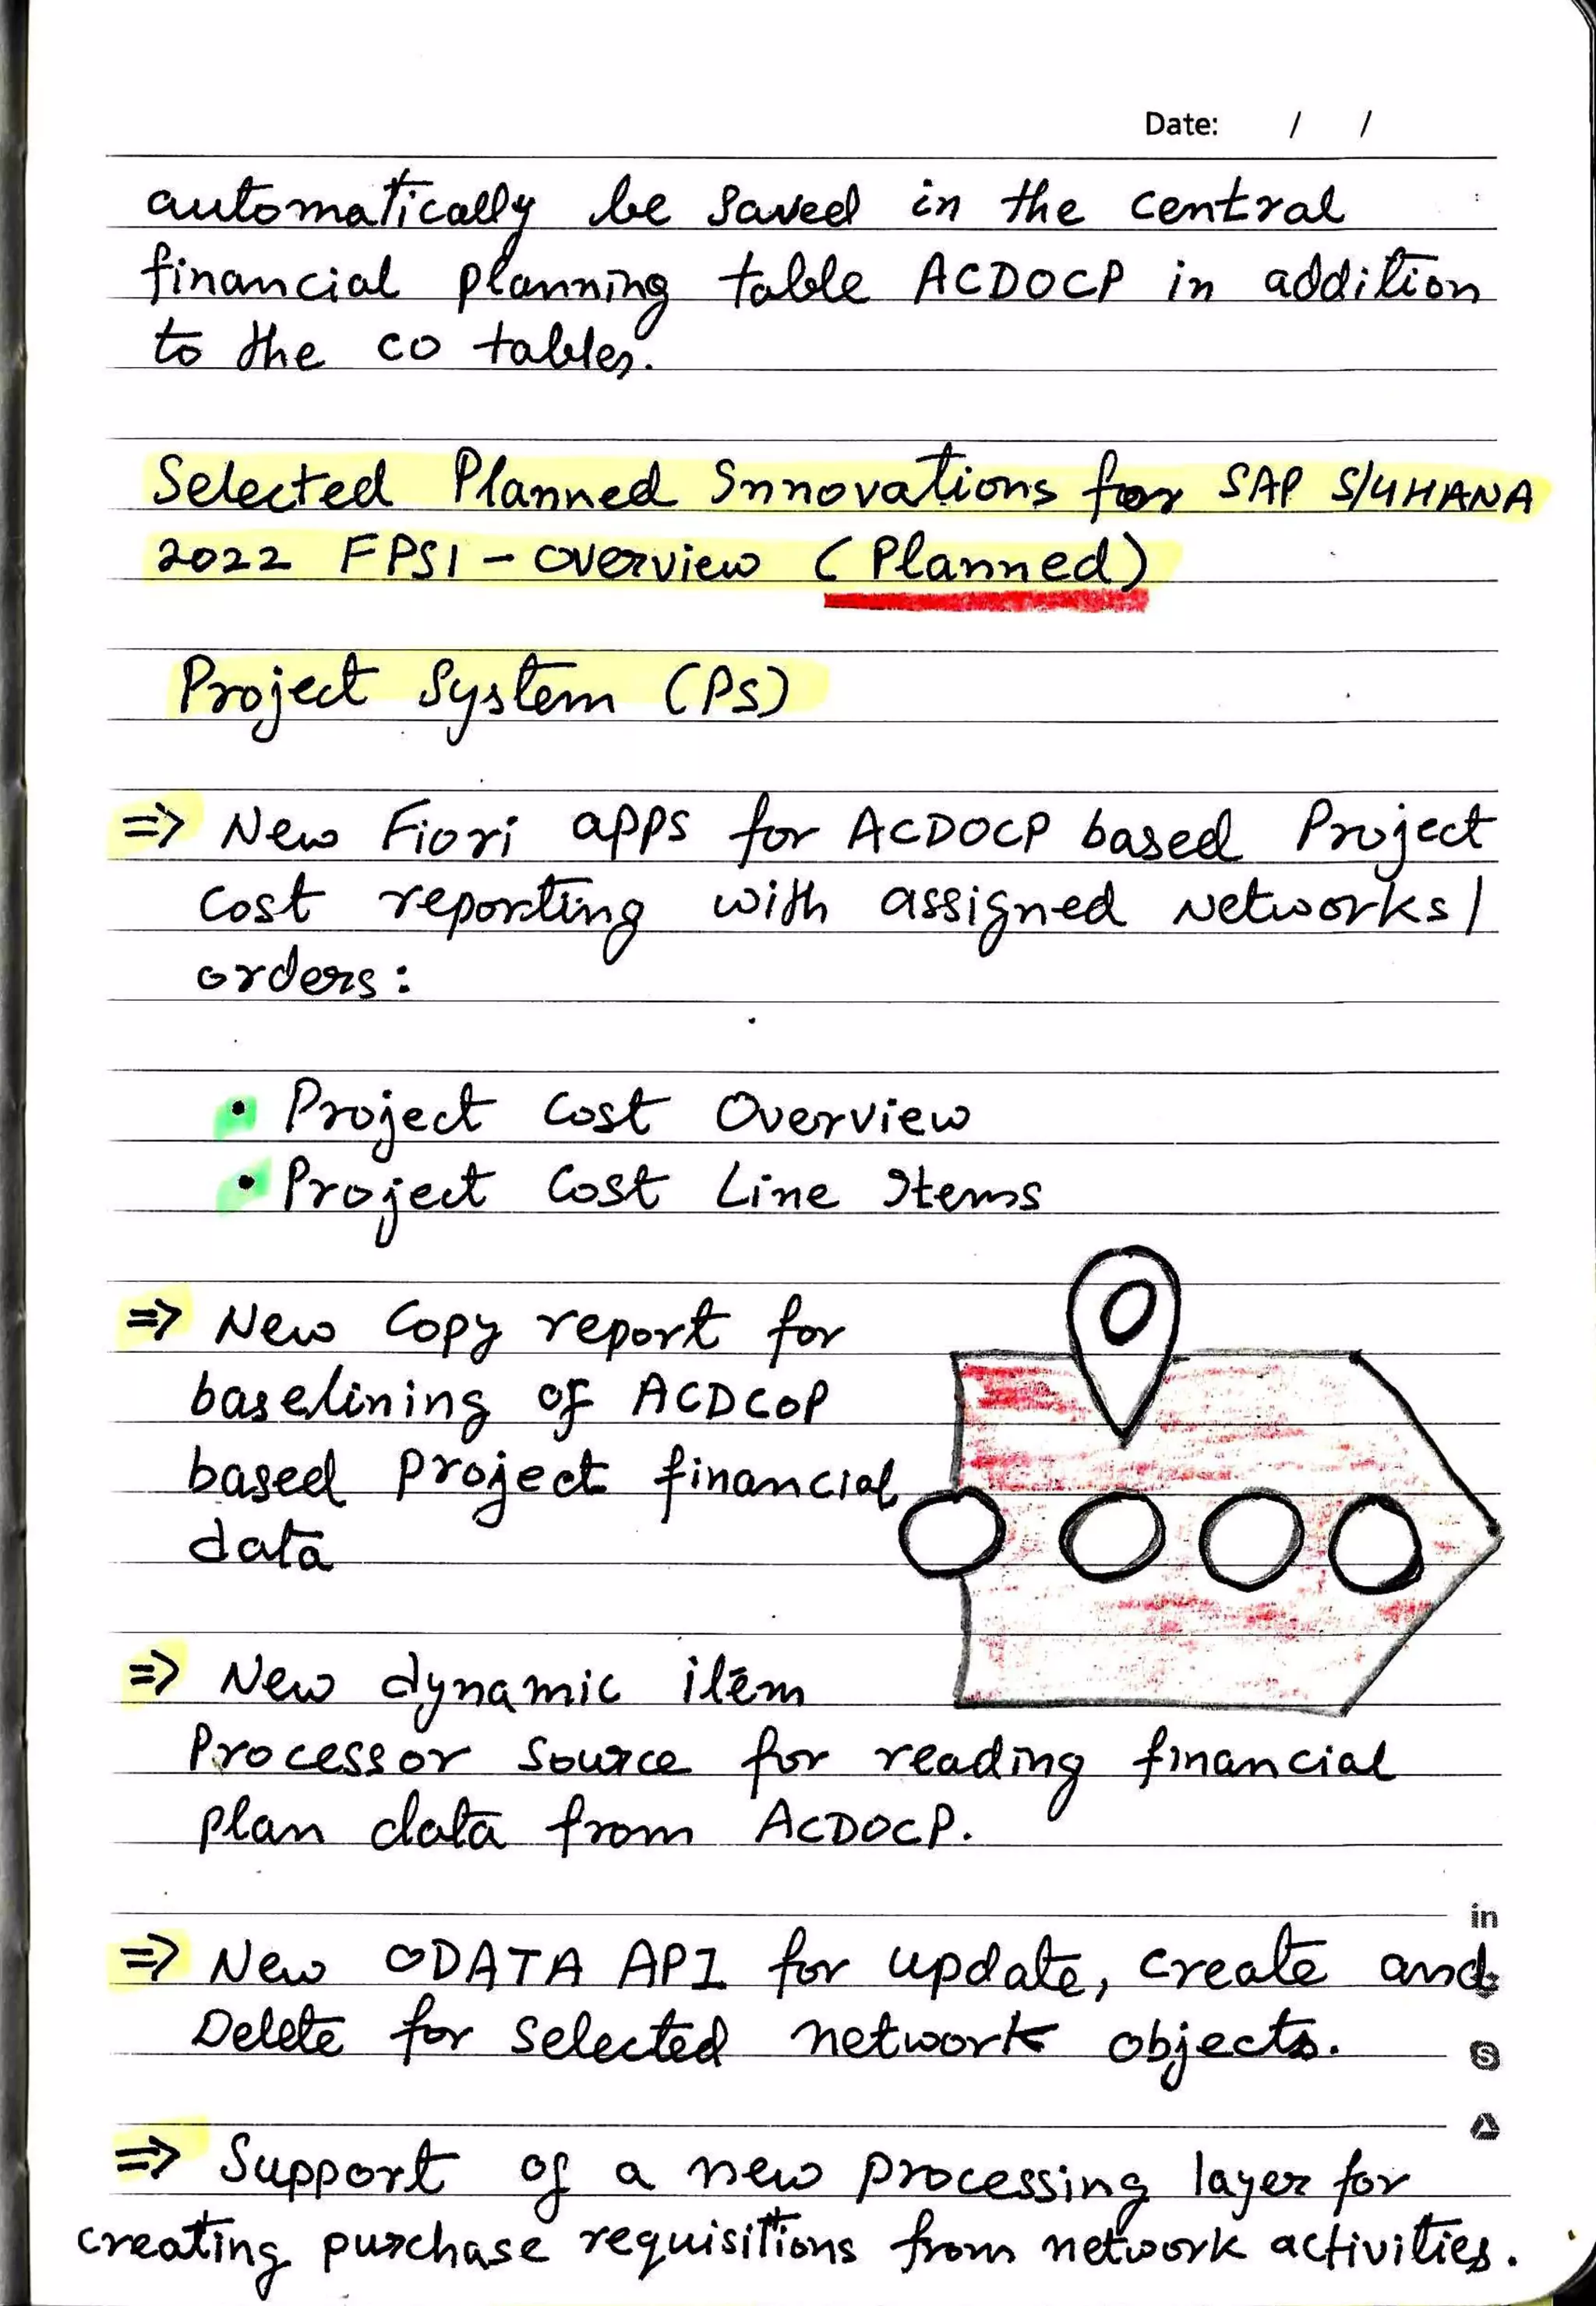 Date: / /
automatically be saved in the central
financial planning table ACDOCP in addition
to the CO tables.
Selected Planned Innovations for SAP S/4HANA
2022 FPS1 - overview (Planned)
Project System (PS)
=> New Fiori apps for ACDOCP based Project
Cost reporting with assigned Networks/
orders:
• Project Cost Overview
• Project Cost Line Items
=> New Copy report for
baselining of ACDCOP
based project financial
data
=> New dynamic item
Processor source for reading financial
plan data from ACDOCP.
in
=> New ODATA API for update, create and
Delete for selected network objects.
=> Support of a new processing layer for
creating purchase requisitions from network activities.